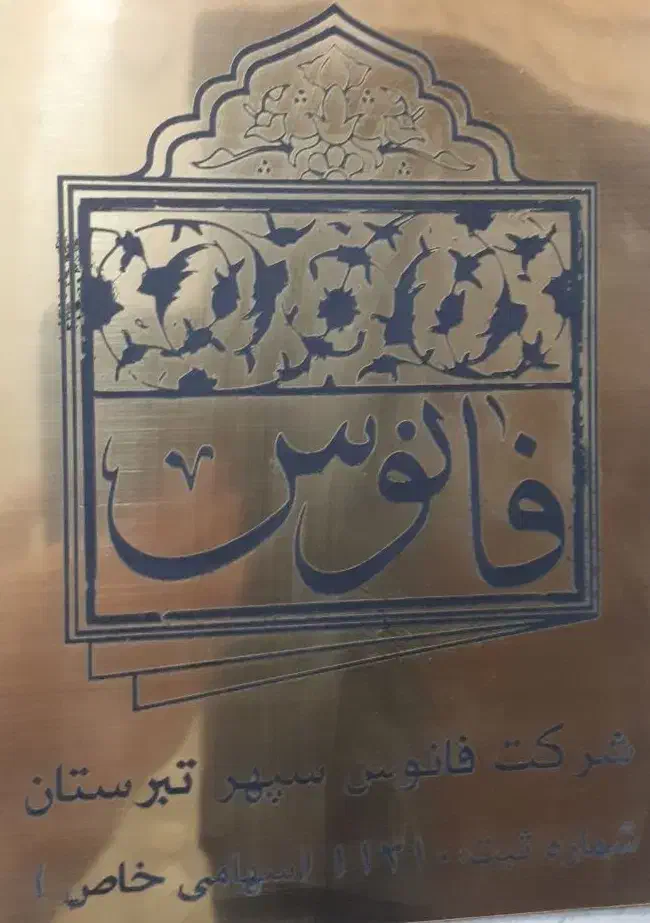 فانوس
شرکت فانوس سپهر تبرستان
شماره ثبت: (سهامی خاص)